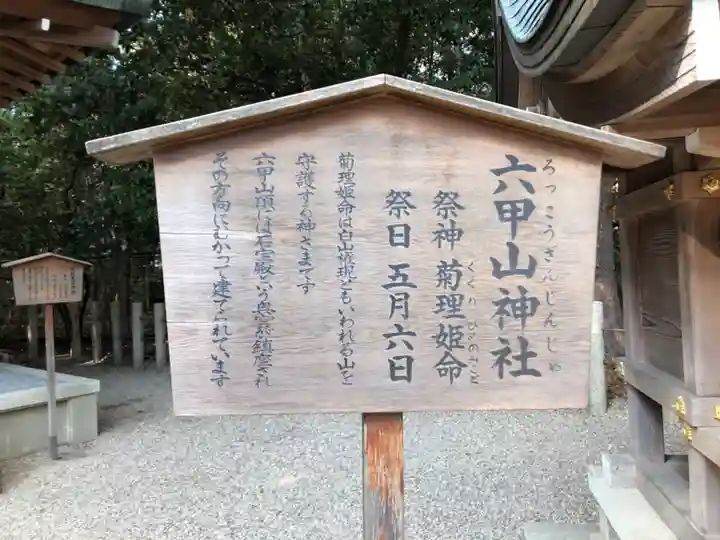 六甲山神社
ろっこうさんじんじゃ
祭神 菊理姫命
くくりひめのみこと
祭日 五月六日
菊理姫命は白山権現ともいわれる山を
守護する神さまです
六甲山頂には石宝殿という奥宮が鎮座され
その方向にむかって建てられています